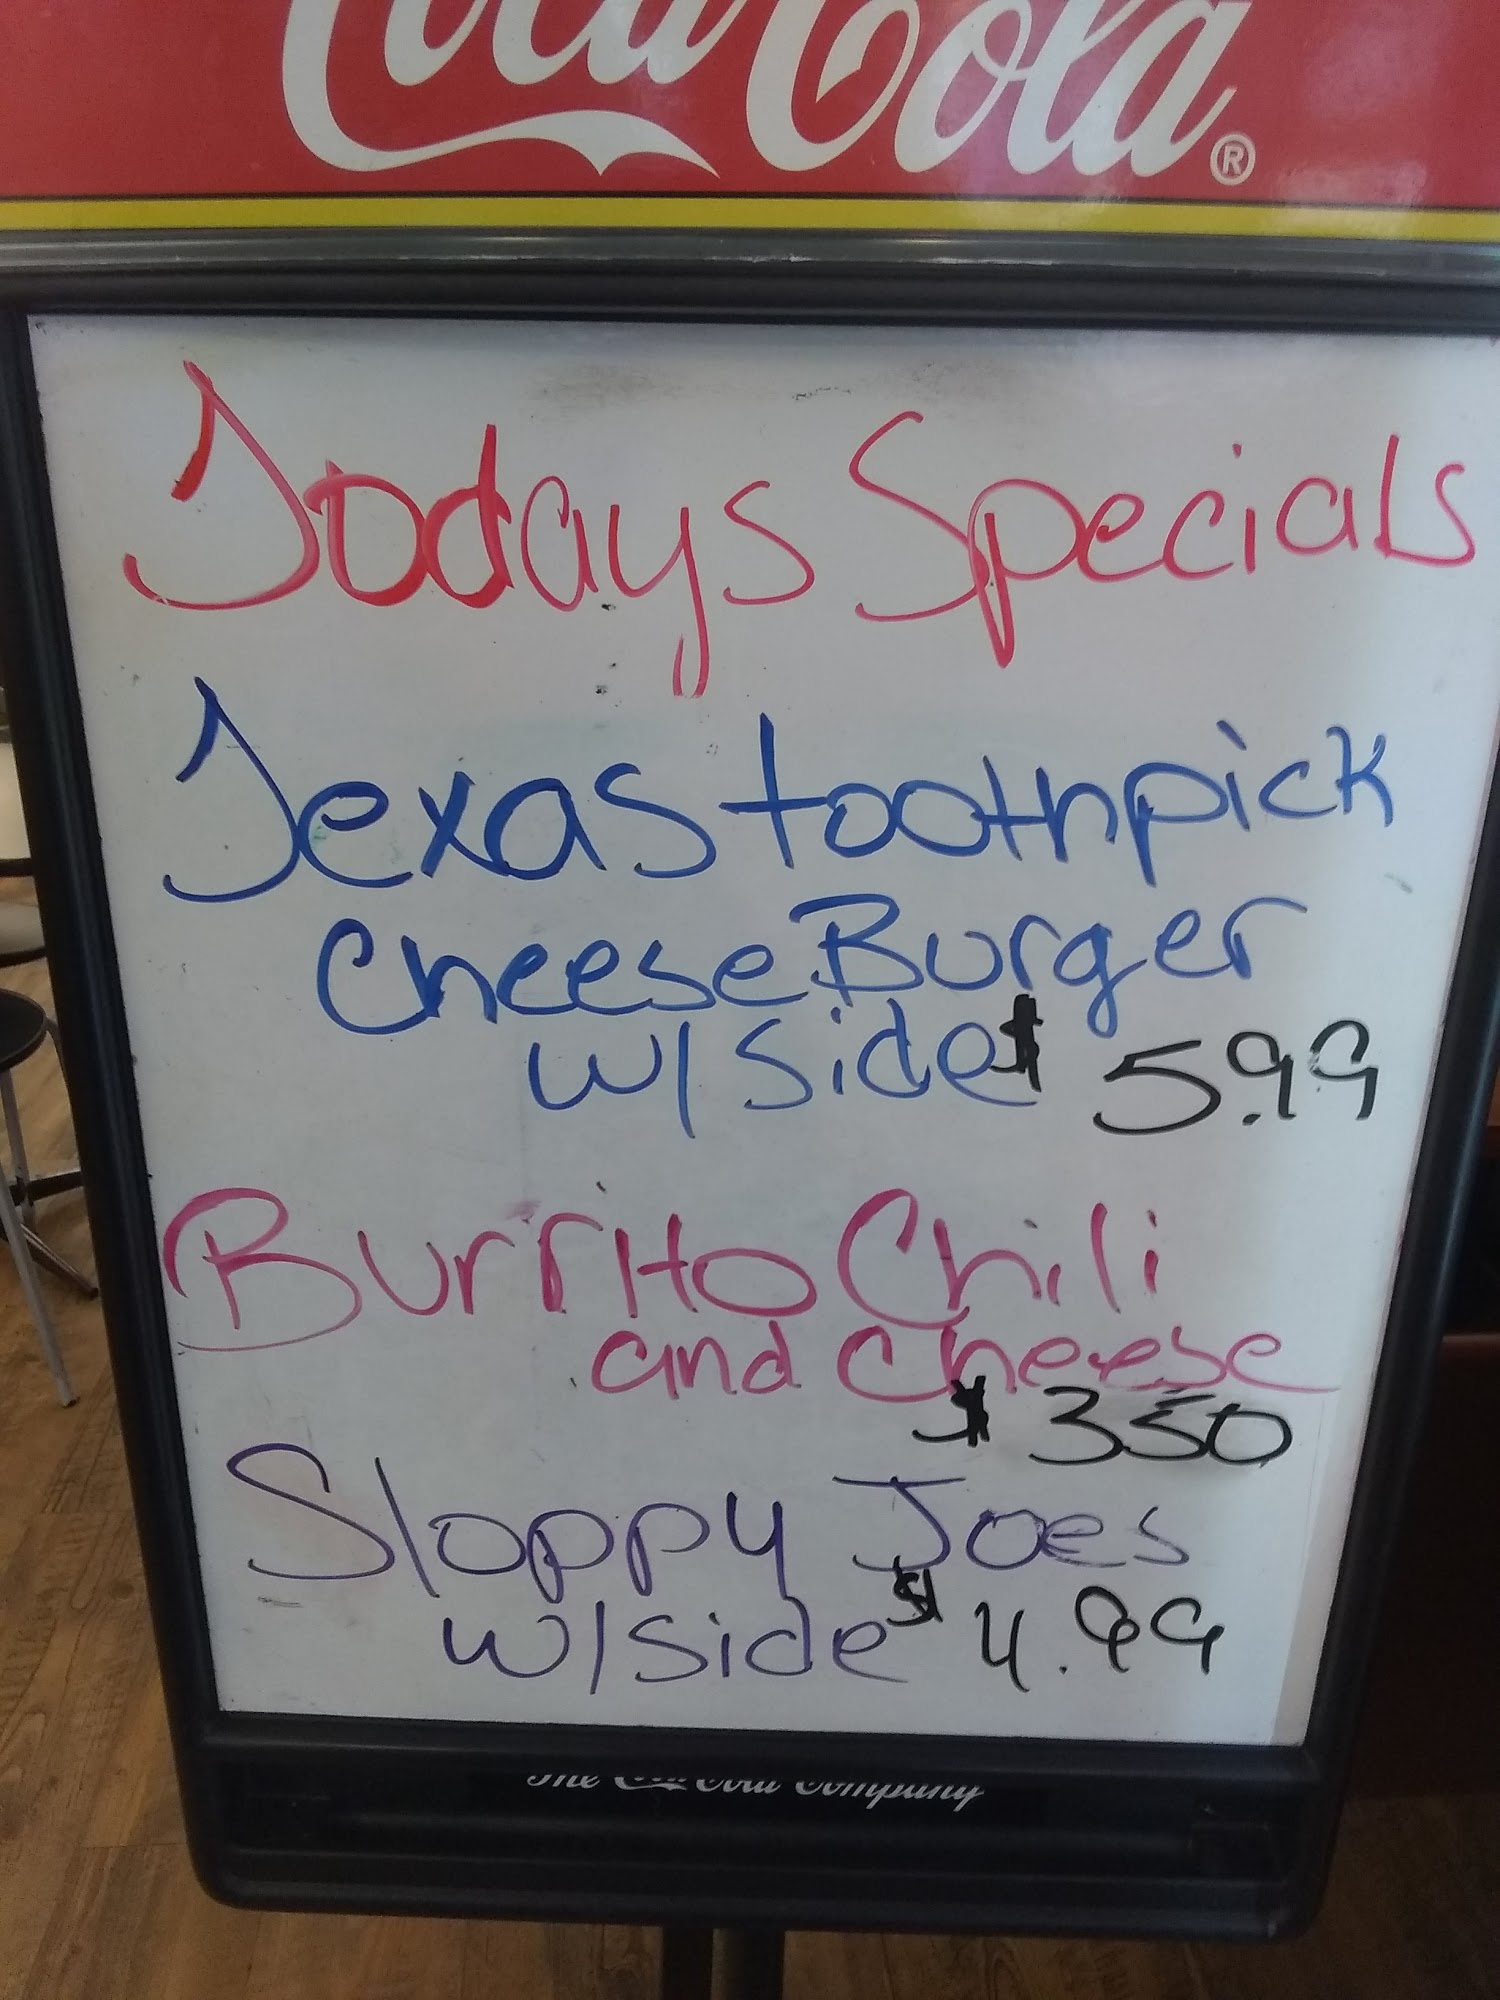 Coca-Cola®
Todays Specials
Texas toothpick
Cheese Burger
w/side $ 5.99
Burrito Chili
and Cheese
$ 350
Sloppy Joes
w/side $ 4.99
The Coca-Cola Company